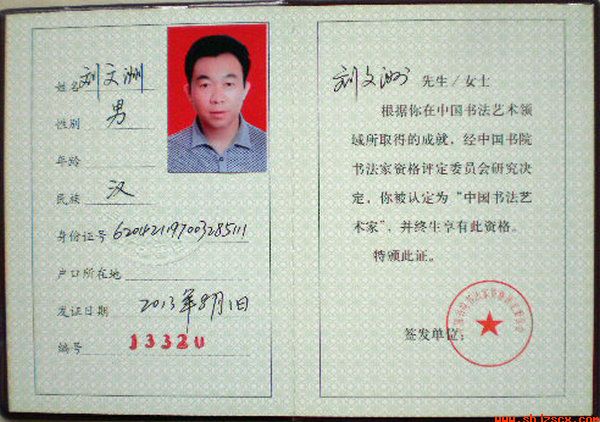 姓名 刘文洲
性别 男
年龄
民族 汉
身份证号 620421197003285111
户口所在地
发证日期 2013年8月1日
编号 13320
刘文洲 先生/女士
根据你在中国书法艺术领
域所取得的成就，经中国书院
书法家资格评定委员会研究决
定，你被认定为“中国书法艺
术家”，并终生享有此资格。
特颁此证。
签发单位：
www.shjzscx.com